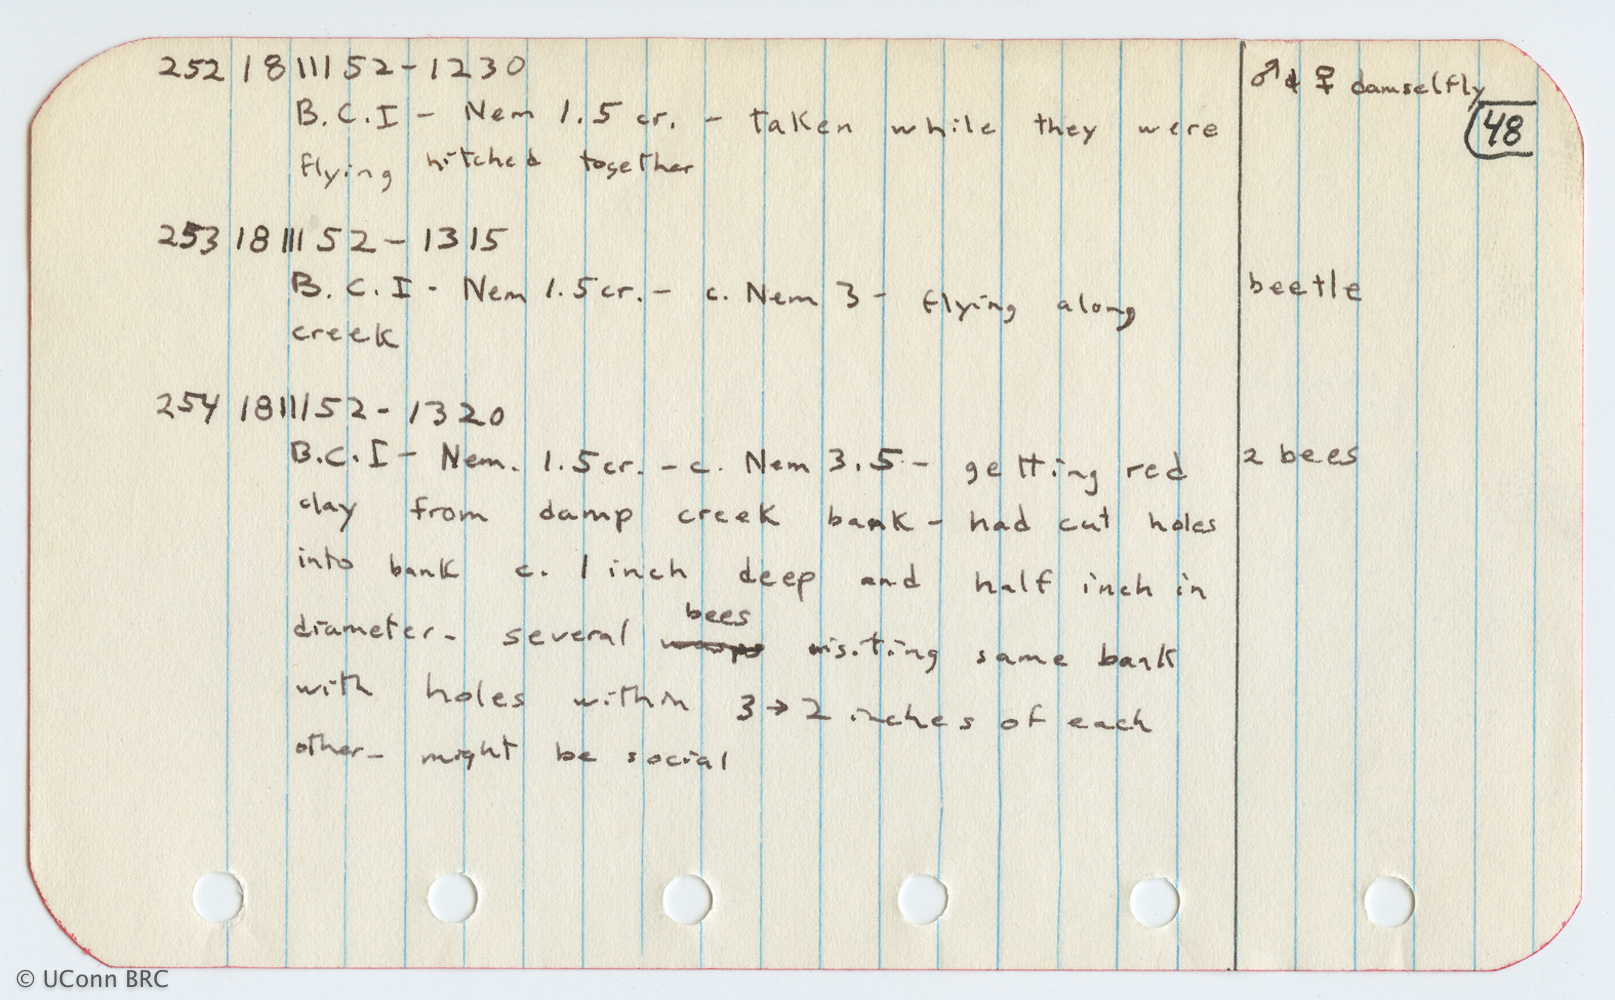 252 18 III 52 - 1230
♂ & ♀ damselfly
48
B.C.I - Nem 1.5 cr. - taken while they were
flying hitched together
253 18 III 52 - 1315
B.C.I - Nem 1.5 cr. - c. Nem 3 - flying along
beetle
creek
254 18 III 52 - 1320
B.C.I - Nem. 1.5 cr. - c. Nem 3.5 - getting red
2 bees
clay from damp creek bank - had cut holes
into bank c. 1 inch deep and half inch in
diameter - several wasps bees visiting same bank
with holes within 3 → 2 inches of each
other - might be social
© UConn BRC